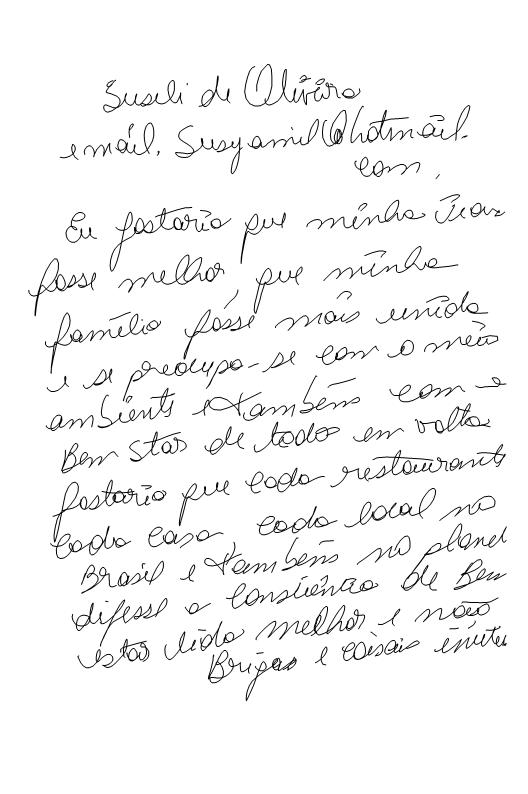 Suseli de Oliveira
email, Susyamil@hotmail.
com,
Eu gostaria que minha
fosse melhor, que minha
família fosse mais unida
e se preocupa-se com o meio
ambiente e também com o
Bem star de todos em volta
gostaria que cada restaurante
cada casa, cada local no
Brasil e também no planet
difesse a de Bem
estar vida melhor e não
Brigas e coisas